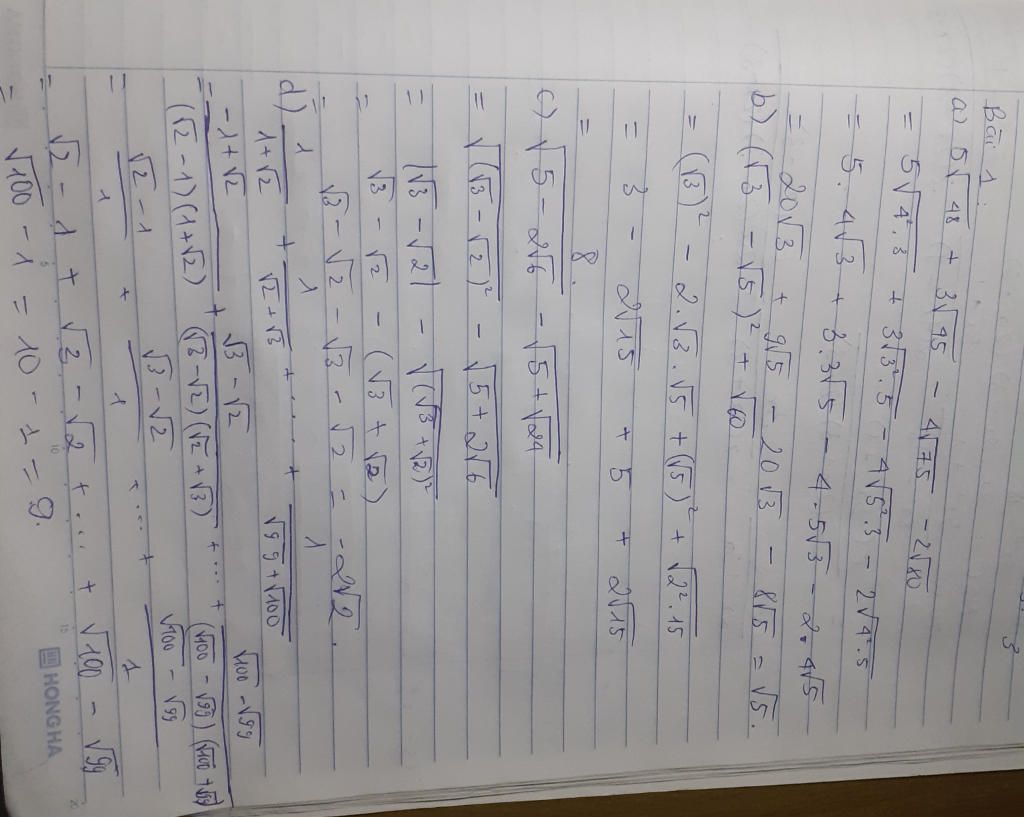 Bài 1:
a) 5√48 + 3√45 - 4√75 - 2√80
= 5√4².3 + 3√3².5 - 4√5².3 - 2√4².5
= 5.4√3 + 3.3√5 - 4.5√3 - 2.4√5
= 20√3 + 9√5 - 20√3 - 8√5 = √5.
b) (√3 - √5)² + √60
= (√3)² - 2.√3.√5 + (√5)² + √2².15
= 3 - 2√15 + 5 + 2√15
= 8.
c) √5-2√6 - √5+√24
= √(√3-√2)² - √5+2√6
= |√3-√2| - √(√3+√2)²
= √3 - √2 - (√3 + √2)
= √3 - √2 - √3 - √2 = -2√2.
d) 1/1+√2 + 1/√2+√3 + .... + 1/√99+√100
= -1+√2/(√2-1)(1+√2) + √3-√2/(√3-√2)(√2+√3) + ... + √100-√99/(√100-√99)(√100+√99)
= √2-1/1 + √3-√2/1 + .... + √100-√99/1
= √2 - 1 + √3 - √2 + ... + √100 - √99
= √100 - 1 = 10 - 1 = 9.
HONG HA